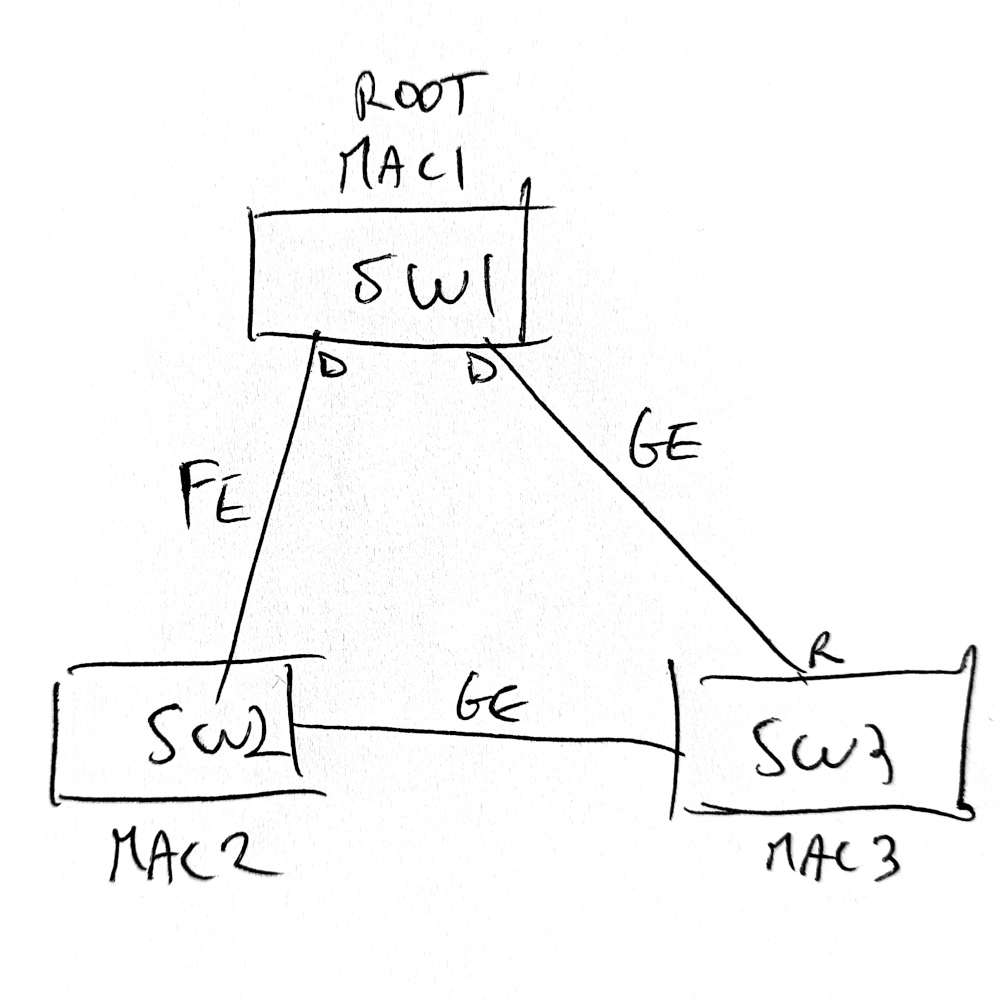 ROOT
MAC1
SW1
D
D
GE
FE
R
GE
SW2
SW3
MAC2
MAC3